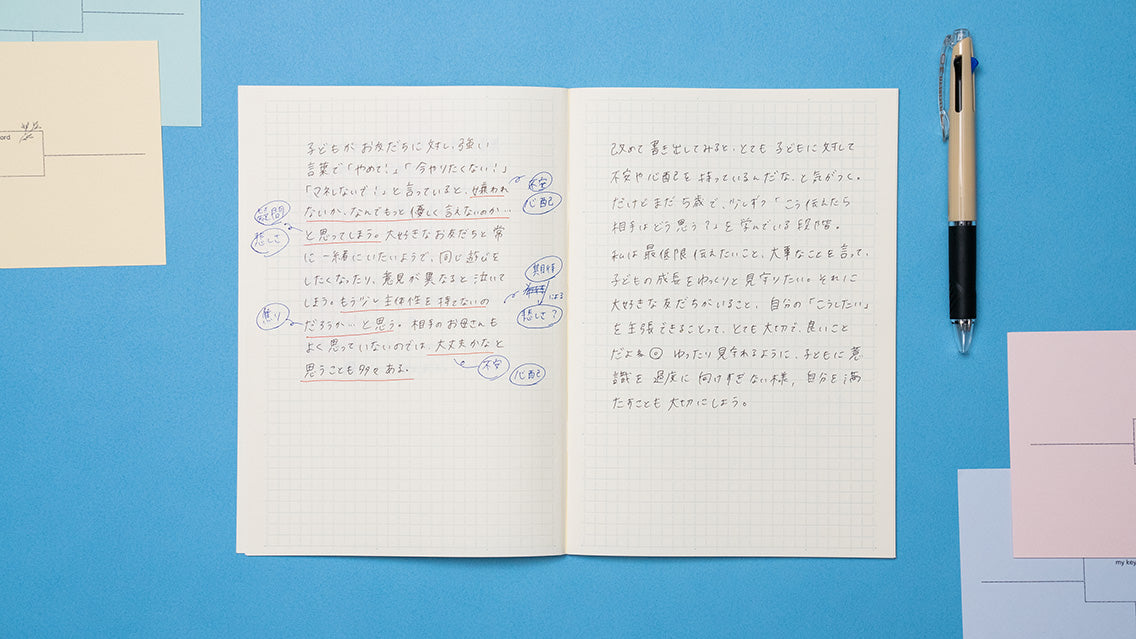 子どもが お友だちに対し、強い
言葉で「やめて!」「今やりたくない!」
「マネしないで!」と言っていると、嫌われ
ないか、なんでもっと優しく言えないのか…
と思ってしまう。大好きなお友だちと常
に一緒にいたいようで、同じ遊びを
したくなったり、意見が異なると泣いて
しまう。もう少し主体性を持てないの
だろうか…と思う。相手のお母さんも
よく思っていないのでは、大丈夫かなと
思うことも多々ある。
不安
心配
疑問
悲しさ
期待
による
悲しさ?
焦り
不安
心配
改めて書き出してみると、とても子どもに対して
不安や心配を持っているんだな、と気がつく。
だけどまだ5歳で、少しずつ「こう伝えたら
相手はどう思う?」を学んでいる段階。
私は最低限伝えたいこと、大事なことを言って、
子どもの成長をゆっくりと見守りたい。それに
大好きな友だちがいること、自分の「こうしたい」
を主張できることって、とても大切で、良いこと
だよね◎ ゆったり見守れるように、子どもに意
識を過度に向けすぎない様、自分を満
たすことも大切にしよう。
ord
my key